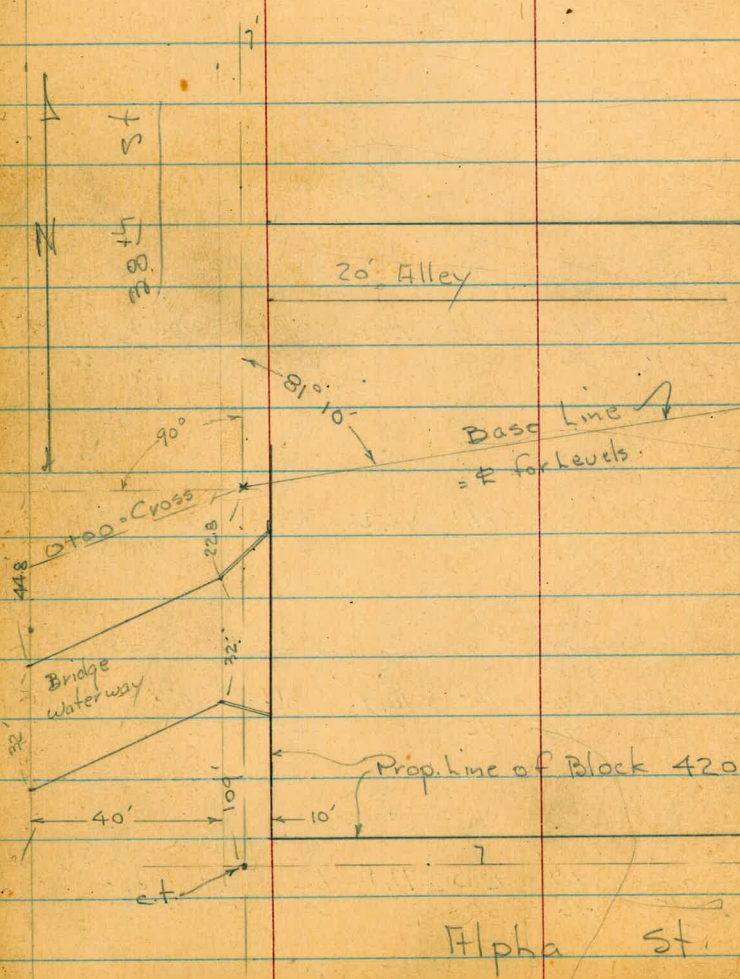 7'
38th St
N
20' Alley
81° 10'
90°
Base Line
= ℄ for Levels.
0+00 = Cross
22.8
44.8
32'
Bridge
Waterway
32'
Prop. Line of Block 420
109'
40'
10'
7
c.t.
Alpha St.